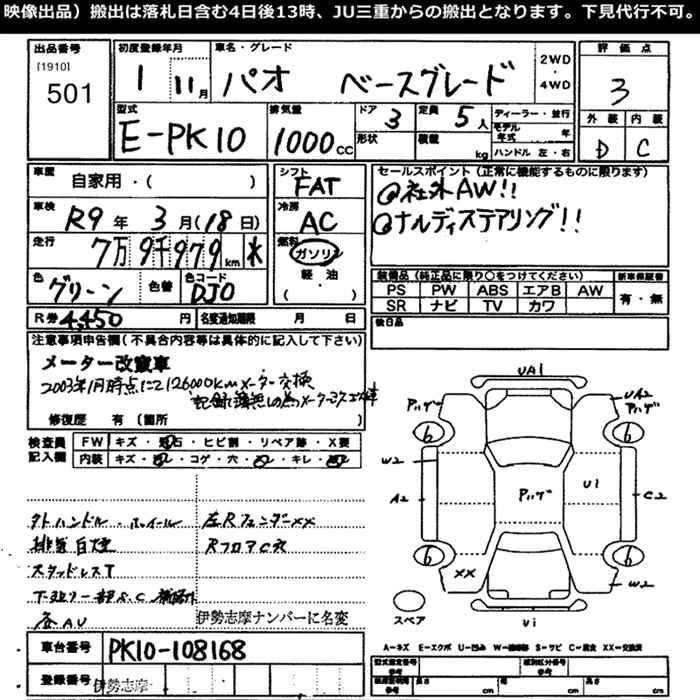 映像出品）搬出は落札日含む4日後13時、JU三重からの搬出となります。下見代行不可。
出品番号
[1910]
501
初度登録年月
1 11月
車名・グレード
パオ ベースグレード
2WD
・
4WD
評価点
3
型式
E-PK10
排気量
1000cc
ドア
3
形状
定員
5人
積載
kg
ディーラー・並行
モデル年式 年
ハンドル 左・右
外装 内装
D C
車歴
自家用・( )
シフト
FAT
車検
R9年 3月(18日)
冷房
AC
走行
7万9千979km
燃料
ガソリン
軽・油
( )
色
グリーン
色替
色コード
DJ0
R券 4,450円
名変通知期限 月 日
セールスポイント（正常に機能するものに限ります）
@社外AW!!
@ナルディステアリング!!
装備品（純正品に限り○をつけてください）
PS PW ABS エアB AW
SR ナビ TV カワ
新車保証書
有・無
後日品
注意事項申告欄（不具合内容等は具体的に記入して下さい）
メーター改竄車
2003年1月時点にて126000kmメーター交換
修復歴 有（箇所
検査員記入欄
FW キズ・飛石・ヒビ割・リペア跡・X要
内装 キズ・・コゲ・穴・・キレ・
外ハンドル・ホイール 左Rフェンダーxx
排気白煙 RフロアC穴
スタッドレスT
伊勢志摩ナンバーに名変
車台番号
PK10-108168
登録番号
伊勢志摩
UA1
アハゲ
UA2
アハゲ
6 6
W2
A2
アハゲ
U1
C2
6 6
XX
W2
U1
スペア
A=キズ E=エクボ U=凹み W=補修跡 S=サビ C=腐食 XX=交換済
型式指定番号
参考
類別区分番号
参考
長さ cm
幅 cm
高さ cm